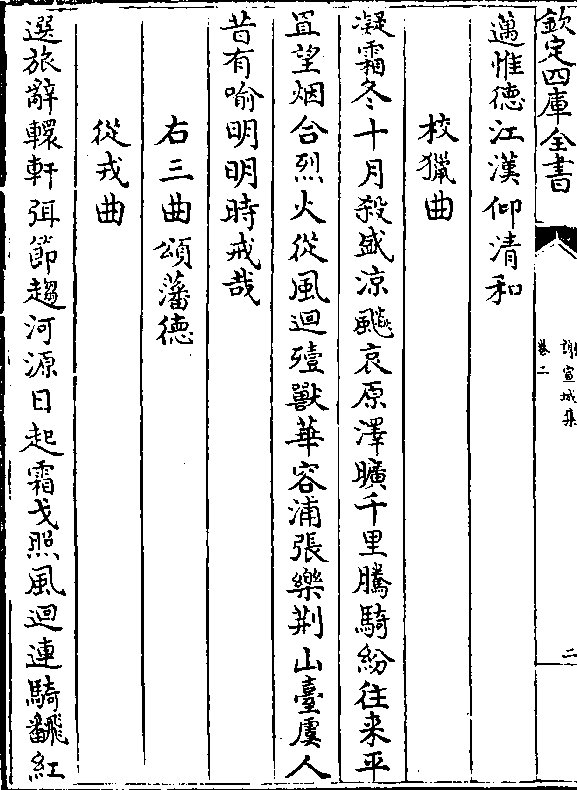 欽定四庫全書
謝宣城集
卷二
二
邁惟德江漢仰清和
校獵曲
凝霜冬十月殺盛涼飈哀原澤曠千里騰騎紛往来平
罝望烟合烈火從風迴殪獸華容浦張樂荆山臺虞人
昔有喻明明時戒哉
右三曲頌藩德
從戎曲
選旅辭轘軒弭節趨河源日起霜戈照風迴連騎飜紅